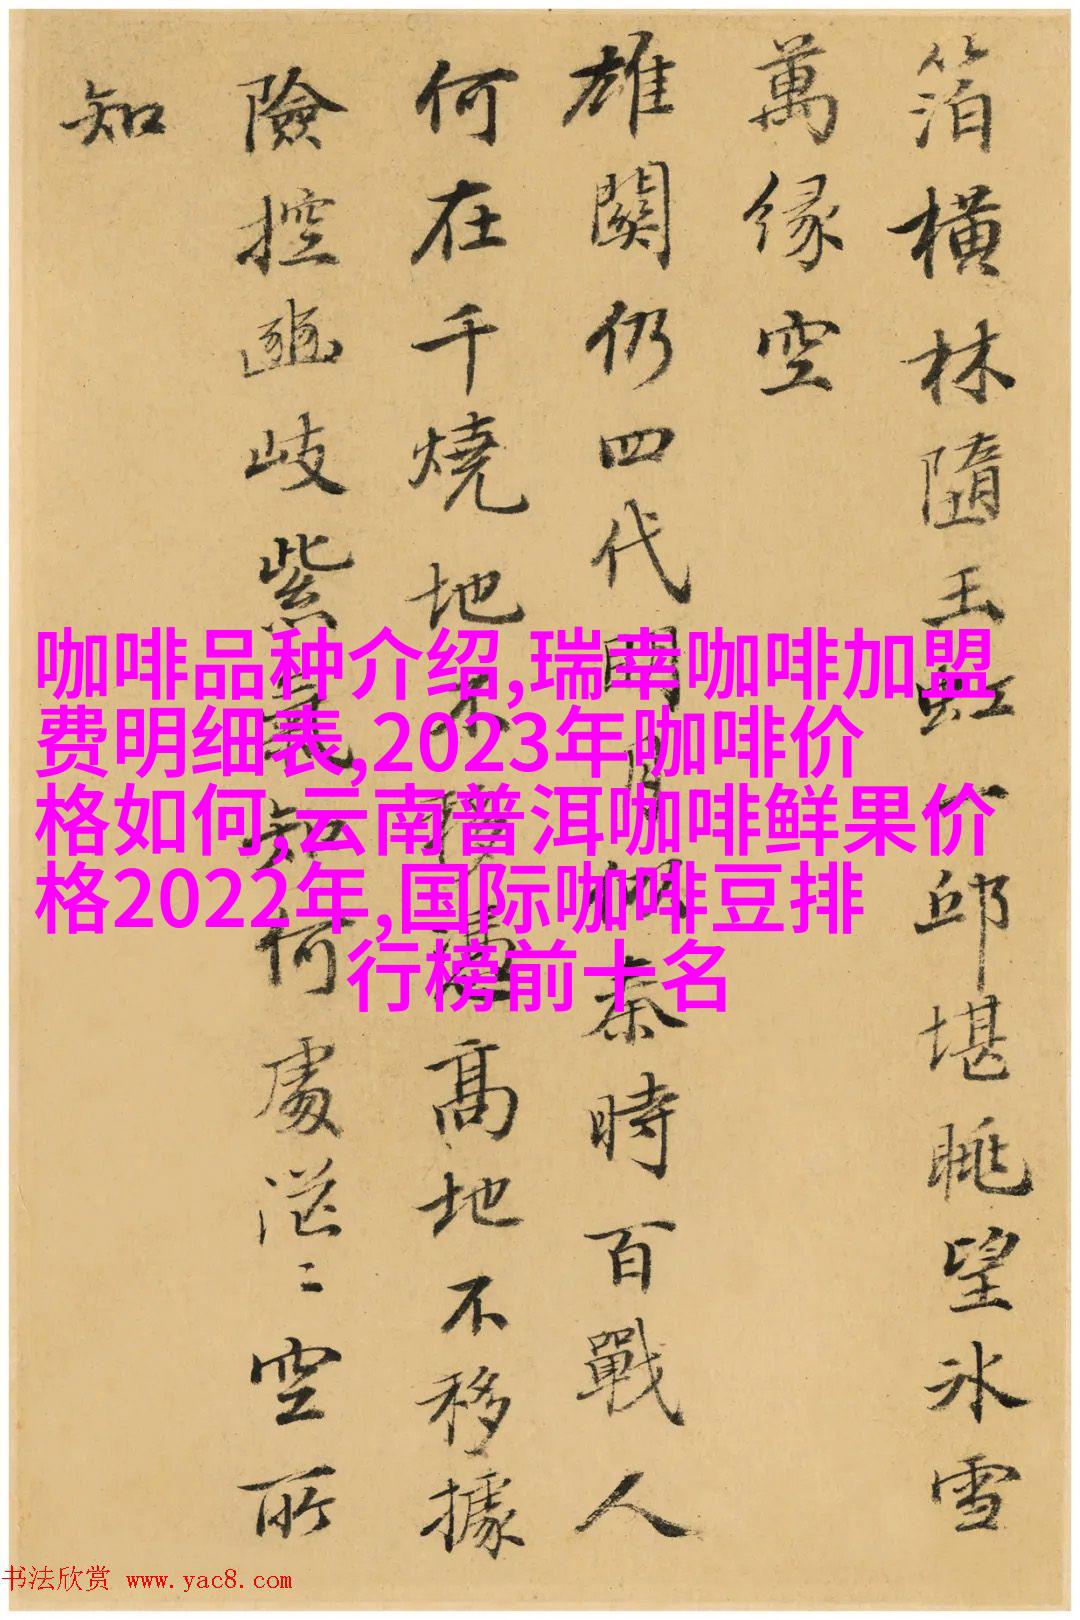 箔橫林隨玉虹一邱堪眺望氷雪
萬緣空
雄關仍四代明月祠秦時百戰人
何在千燒地不移憑高地不移據
險控豳岐紫氣知何處茫〻空所
知
咖啡品种介绍,瑞幸咖啡加盟
费明细表,2023年咖啡价
格如何,云南普洱咖啡鲜果价
格2022年,国际咖啡豆排
行榜前十名
书法欣赏 www.yac8.com